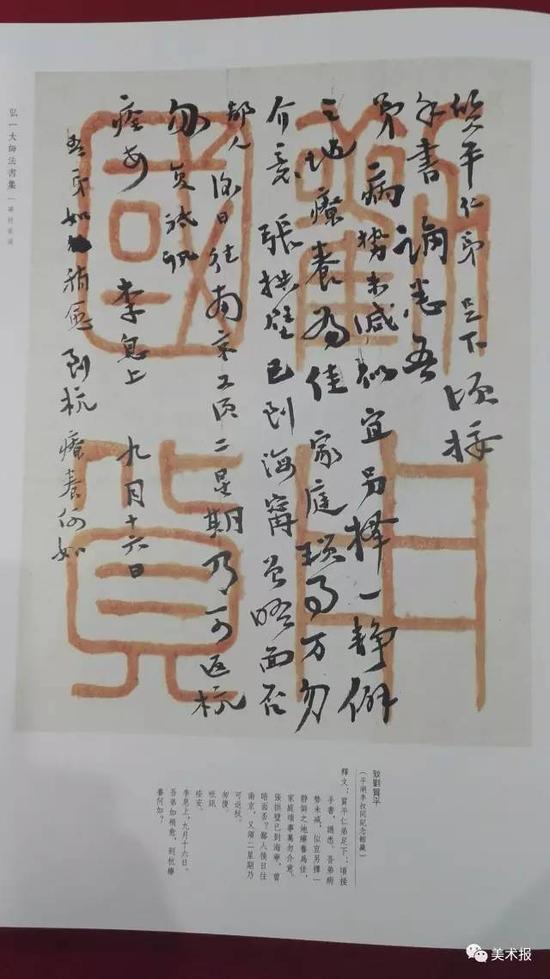 質平仁弟足下頃接
手書誦悉吾
弟病勢未減似宜另擇一靜僻
之地療養為佳家庭瑣事万勿
介意張拱璧已到海甯曾晤面否
鄙人後日往南京又須二星期乃可返杭
勿復祇訊
痊安 李息上 九月十六日
吾弟如稍愈到杭療養何如
勸用
國貨
弘一大師法書集
致劉質平
(平湖李叔同紀念館藏)
釋文:質平仁弟足下:頃接
手書,誦悉。吾弟病
勢未減,似宜另擇一
靜僻之地療養爲佳,
家庭瑣事萬勿介意。
張拱璧已到海寧,曾
晤面否?鄙人後日往
南京,又須二星期乃
可返杭。
勿復。
祗訊
痊安。
李息上,九月十六日。
吾弟如稍愈,到杭療
養何如?
美术报